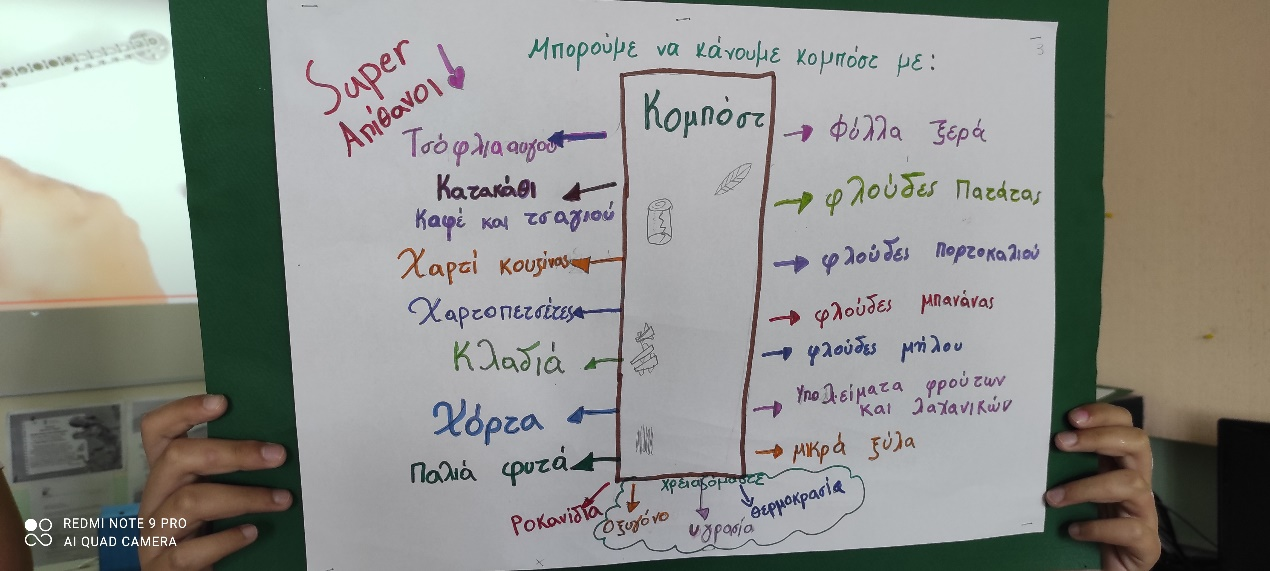 Μπορούμε να κάνουμε κομπόστ με:
Super
Απίθανοι
Κομπόστ
Τσόφλια αυγού
Κατακάθι
Καφέ και τσαγιού
Χαρτί κουζίνας
Χαρτοπετσέτες
Κλαδιά
Χόρτα
Παλιά φυτά
Ροκανίδια
Φύλλα ξερά
φλούδες Πατάτας
φλούδες πορτοκαλιού
φλούδες μπανάνας
φλούδες μήλου
Υπολείματα φρούτων
και λαχανικών
μικρά ξύλα
χρειαζόμαστε
οξυγόνο
υγρασία
θερμοκρασία
3
REDMI NOTE 9 PRO
AI QUAD CAMERA